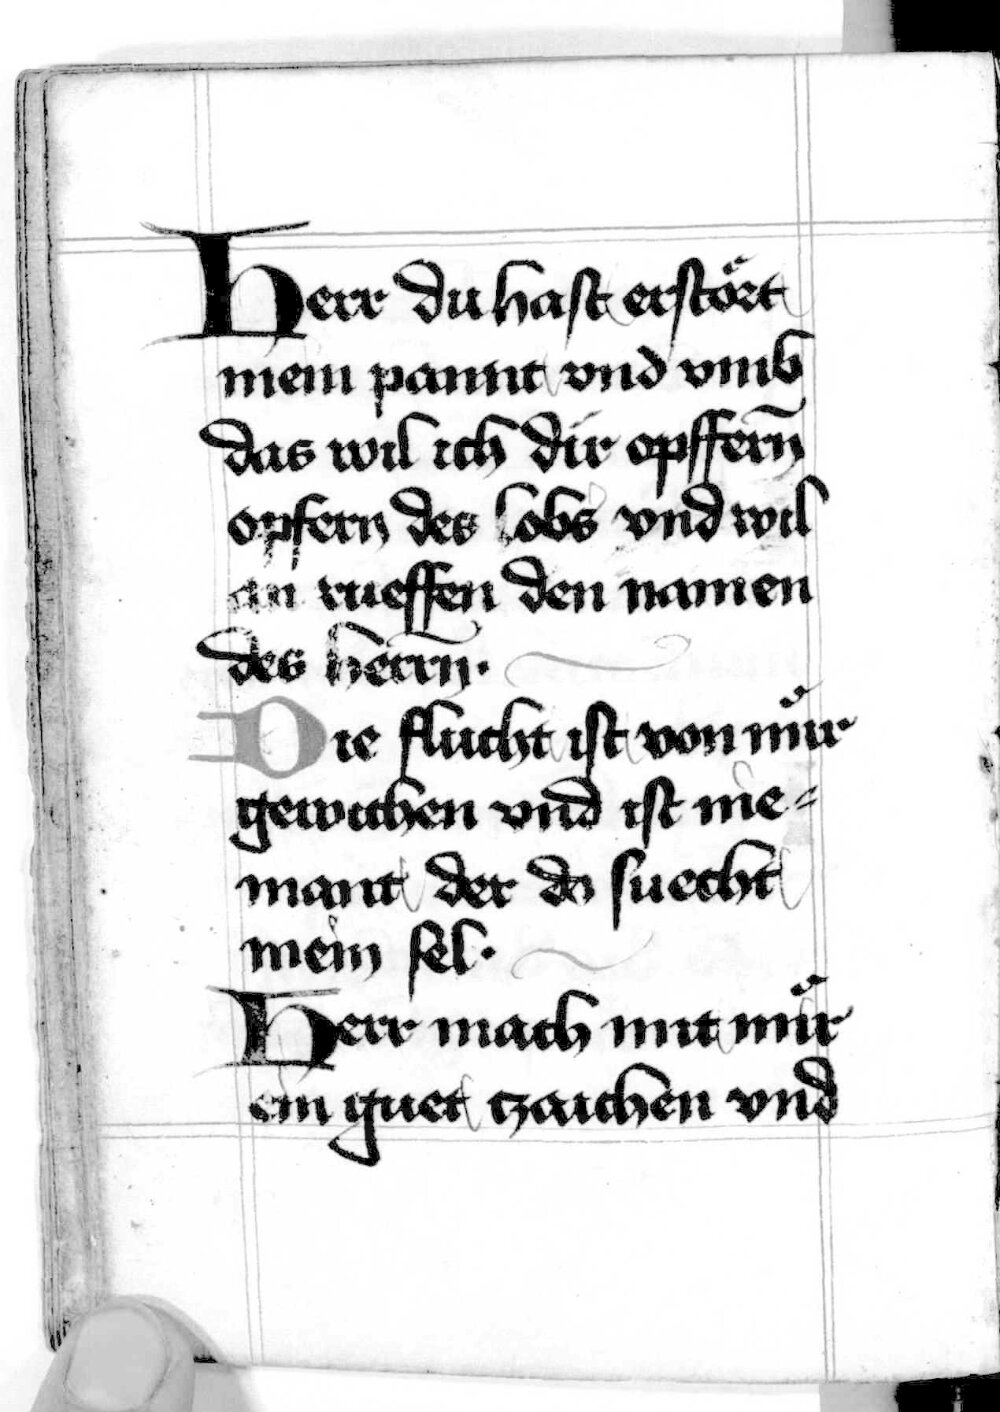 Herr du hast erstört
mein pannt vnd vmb
das wil ich dir opffern̄
opfern des lobs vnd wil
an rueffen den namen
des herrn̄.
Die flucht ist von mür
gewichen vnd ist nie⸗
mant der do suecht
mein sel.
Herr mach mit mür
ein guet tzaichen vnd